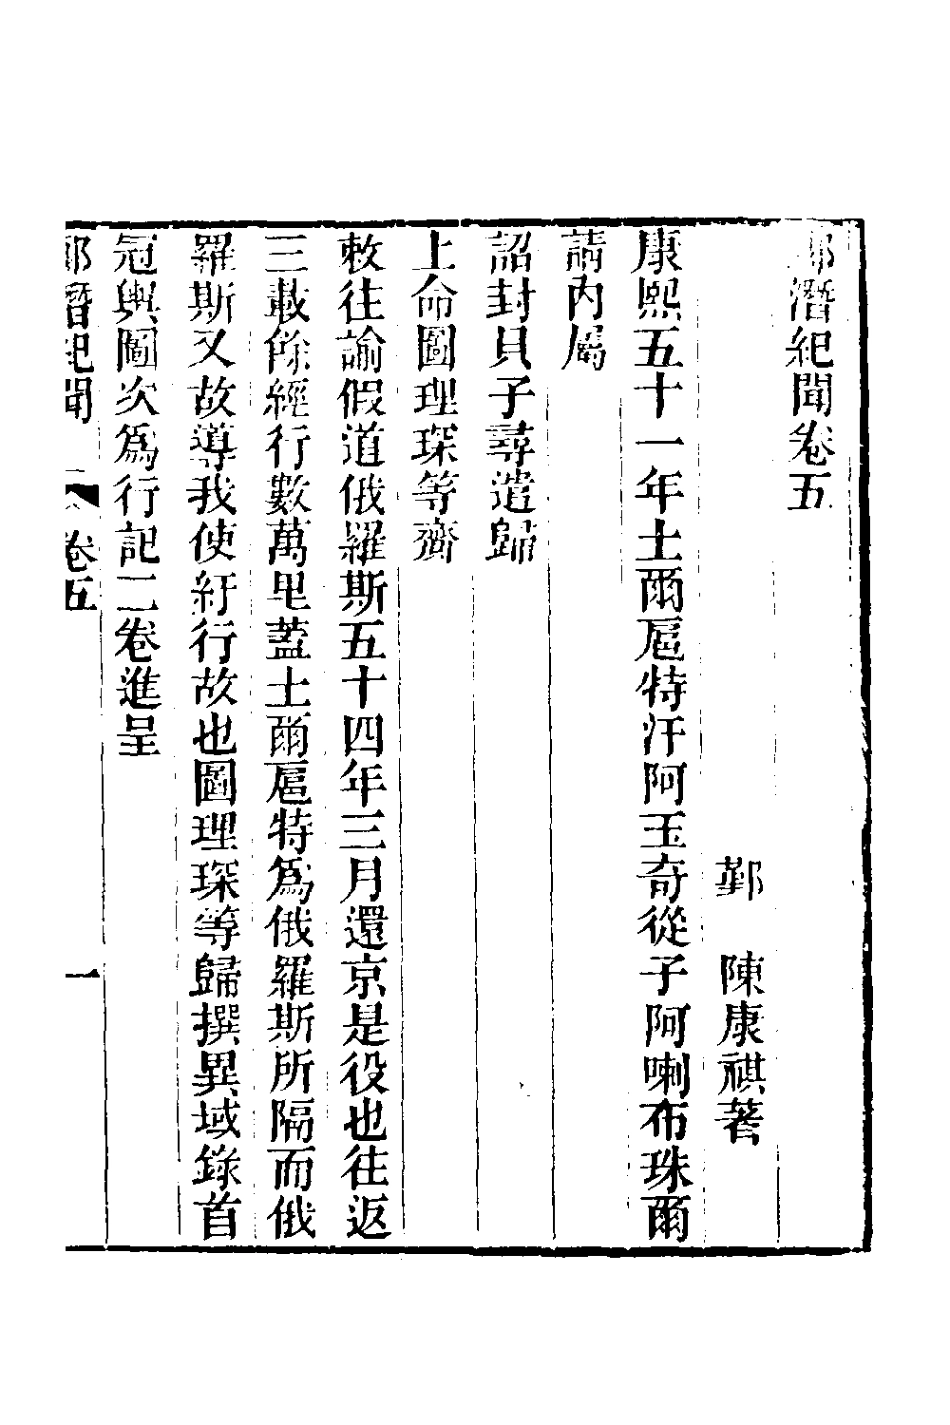 郎潛紀聞卷五
鄞 陳康祺著
康熙五十一年土爾扈特汗阿玉奇從子阿喇布珠爾
請內屬
詔封貝子尋遣歸
上命圖理琛等齎
敕往諭假道俄羅斯五十四年三月還京是役也往返
三載餘經行數萬里葢土爾扈特爲俄羅斯所隔而俄
羅斯又故導我使紆行故也圖理琛等歸撰異域錄首
冠輿圖次爲行記二卷進呈
郎潛紀聞 卷五 一